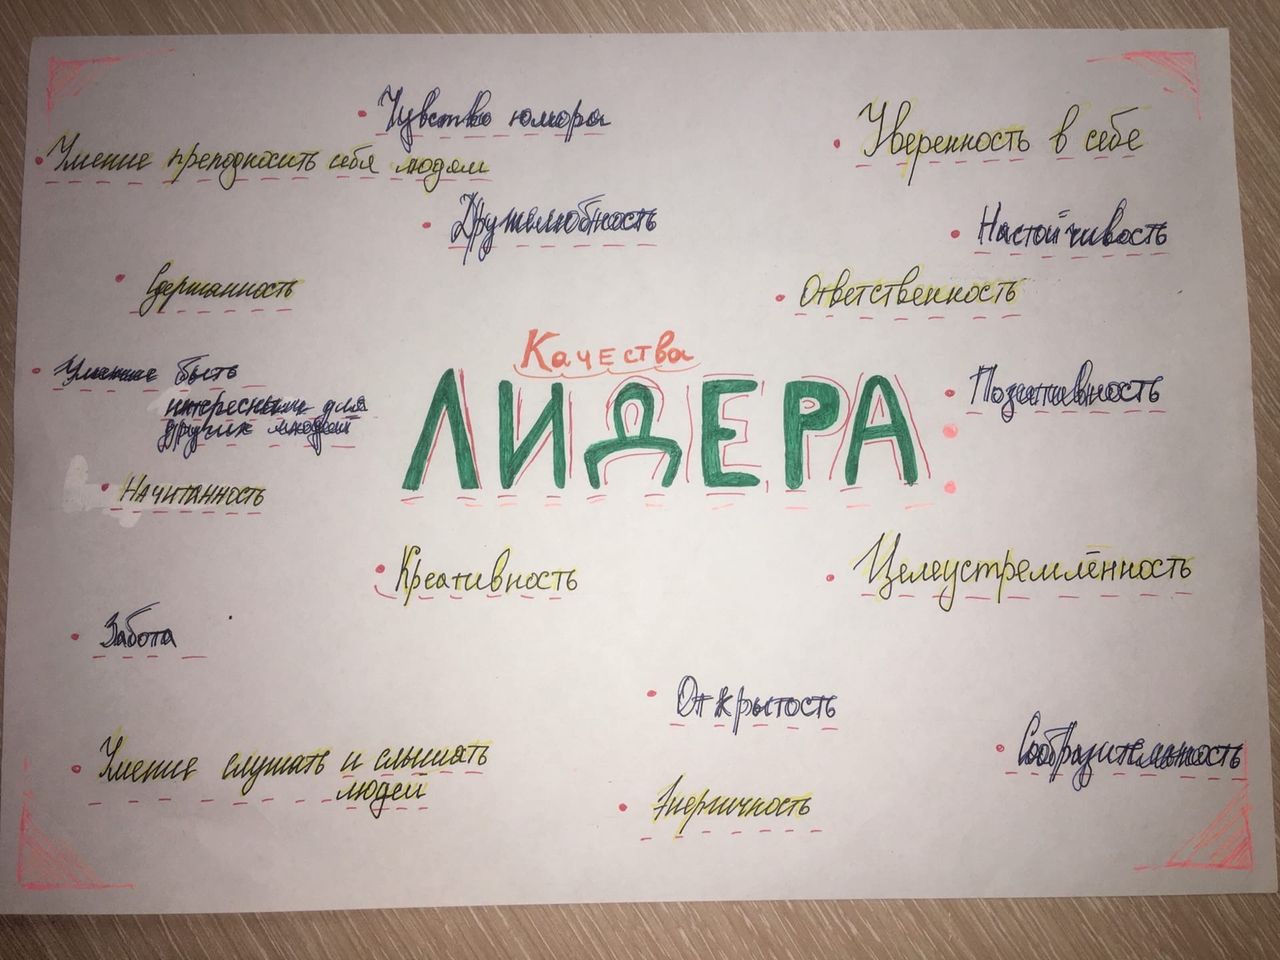 Чувство юмора
Умение преподносить себя людям
Уверенность в себе
Дружелюбность
Настойчивость
Сдержанность
Ответственность
Качества
ЛИДЕРА
Умение быть
интересным для
других людей
Позитивность
Начитанность
Креативность
Целеустремлённость
Забота
Открытость
Умение слушать и слышать
людей
Сообразительность
Энергичность